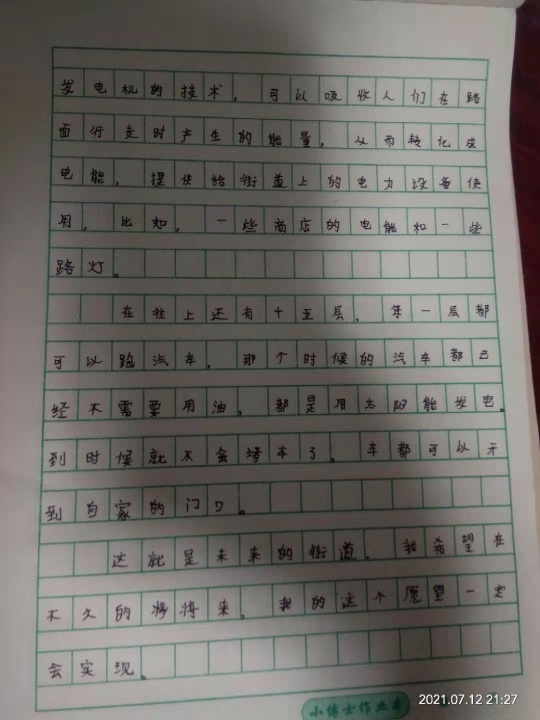 发电机的技术，可以吸收人们在路
面行走时产生的能量，从而转化成
电能，提供给街道上的电力设备使
用，比如，一些商店的电能和一些
路灯。
在往上还有十五层，每一层都
可以跑汽车，那个时候的汽车都已
经不需要用油，都是用太阳能发电。
到时候就不会堵车了。车都可以开
到自家的门口。
这就是未来的街道。我希望在
不久的将将来，我的这个愿望一定
会实现。
小博士作业本
2021.07.12 21:27